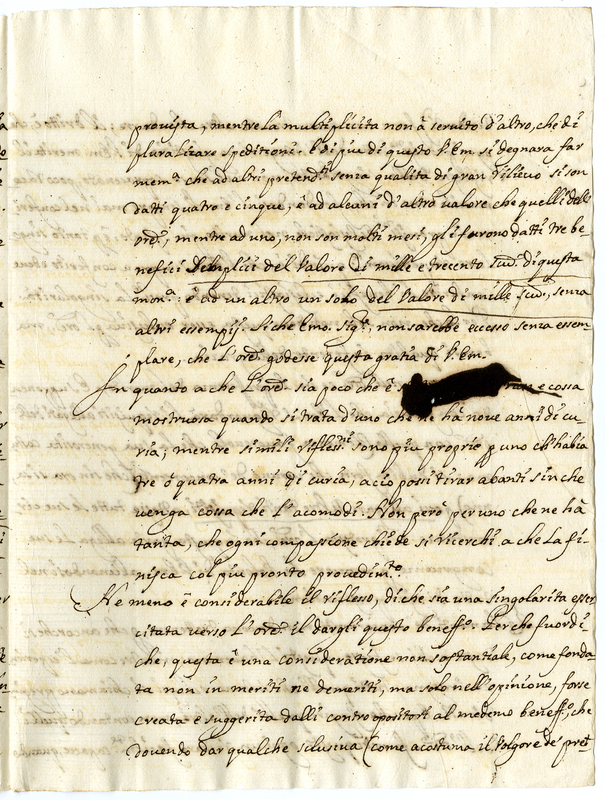 provista, mentre la multiplicita non à servito d'altro, che di
pluralizare speditioni. E di piu di questo V. Em. si degnara far
mem.ª che ad altri pretend.ti senza qualita di gran rilievo si son
datti quatro e cinque, è ad alcuni d'altro valore che quelli dell
ore, mentre ad uno, non son molti mesi, gli furono datti tre be-
nefici semplici del Valore di mille e trecento scud. di questa
mon.ª: è ad un altro un solo del Valore di mille scud., senza
altri essempij. Si che Emo. Sig.r, non sarebbe eccesso senza essem-
plare, che L'ore. godesse questa gratia di V. Em.
In quanto a che L'ore. sia poco che è e cossa
mostruosa quando si trata d'uno che ne hà nove anni di cu-
ria; mentre simili rifless.ni sono piu proprie p uno ch'habia
tre ò quatra anni di curia, acio possi tirar avanti sin che
venga cossa che l'acomodi. Non però per uno che ne hà
tanta, che ogni compassione chiede si ricerchi a che la fi-
nisca col piu pronto provedim.to.
Ne meno è considerabile il riflesso, di che sia una singolarita esser-
citata verso L'ore. il dargli questo beneff.o. Perche fuor di
che, questa è una consideratione non sostantiale, come fonda-
ta non in meriti ne demeriti, ma solo nell'opinione, forse
creata e suggerita dalli contro opositori al medemo beneff.o, che
dovendo dar qualche silusiva (come acostuma il Volgore de pret